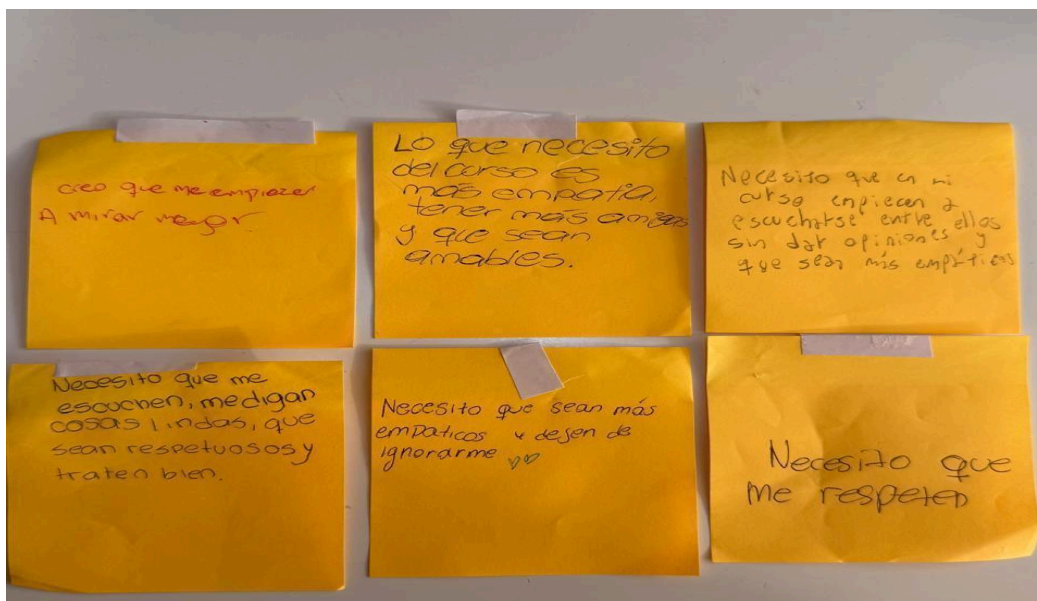 creo que me empiezen
A mirar mejor
Lo que necesito
del curso es
más empatía,
tener más amigas
y que sean
amables.
Necesito que en mi
curso empiecen a
escucharse entre ellos
sin dar opiniones y
que sean más empáticos
Necesito que me
escuchen, me digan
cosas lindas, que
sean respetuosos y
traten bien.
Necesito que sean más
empaticos y dejen de
ignorarme
Necesito que
me respeten